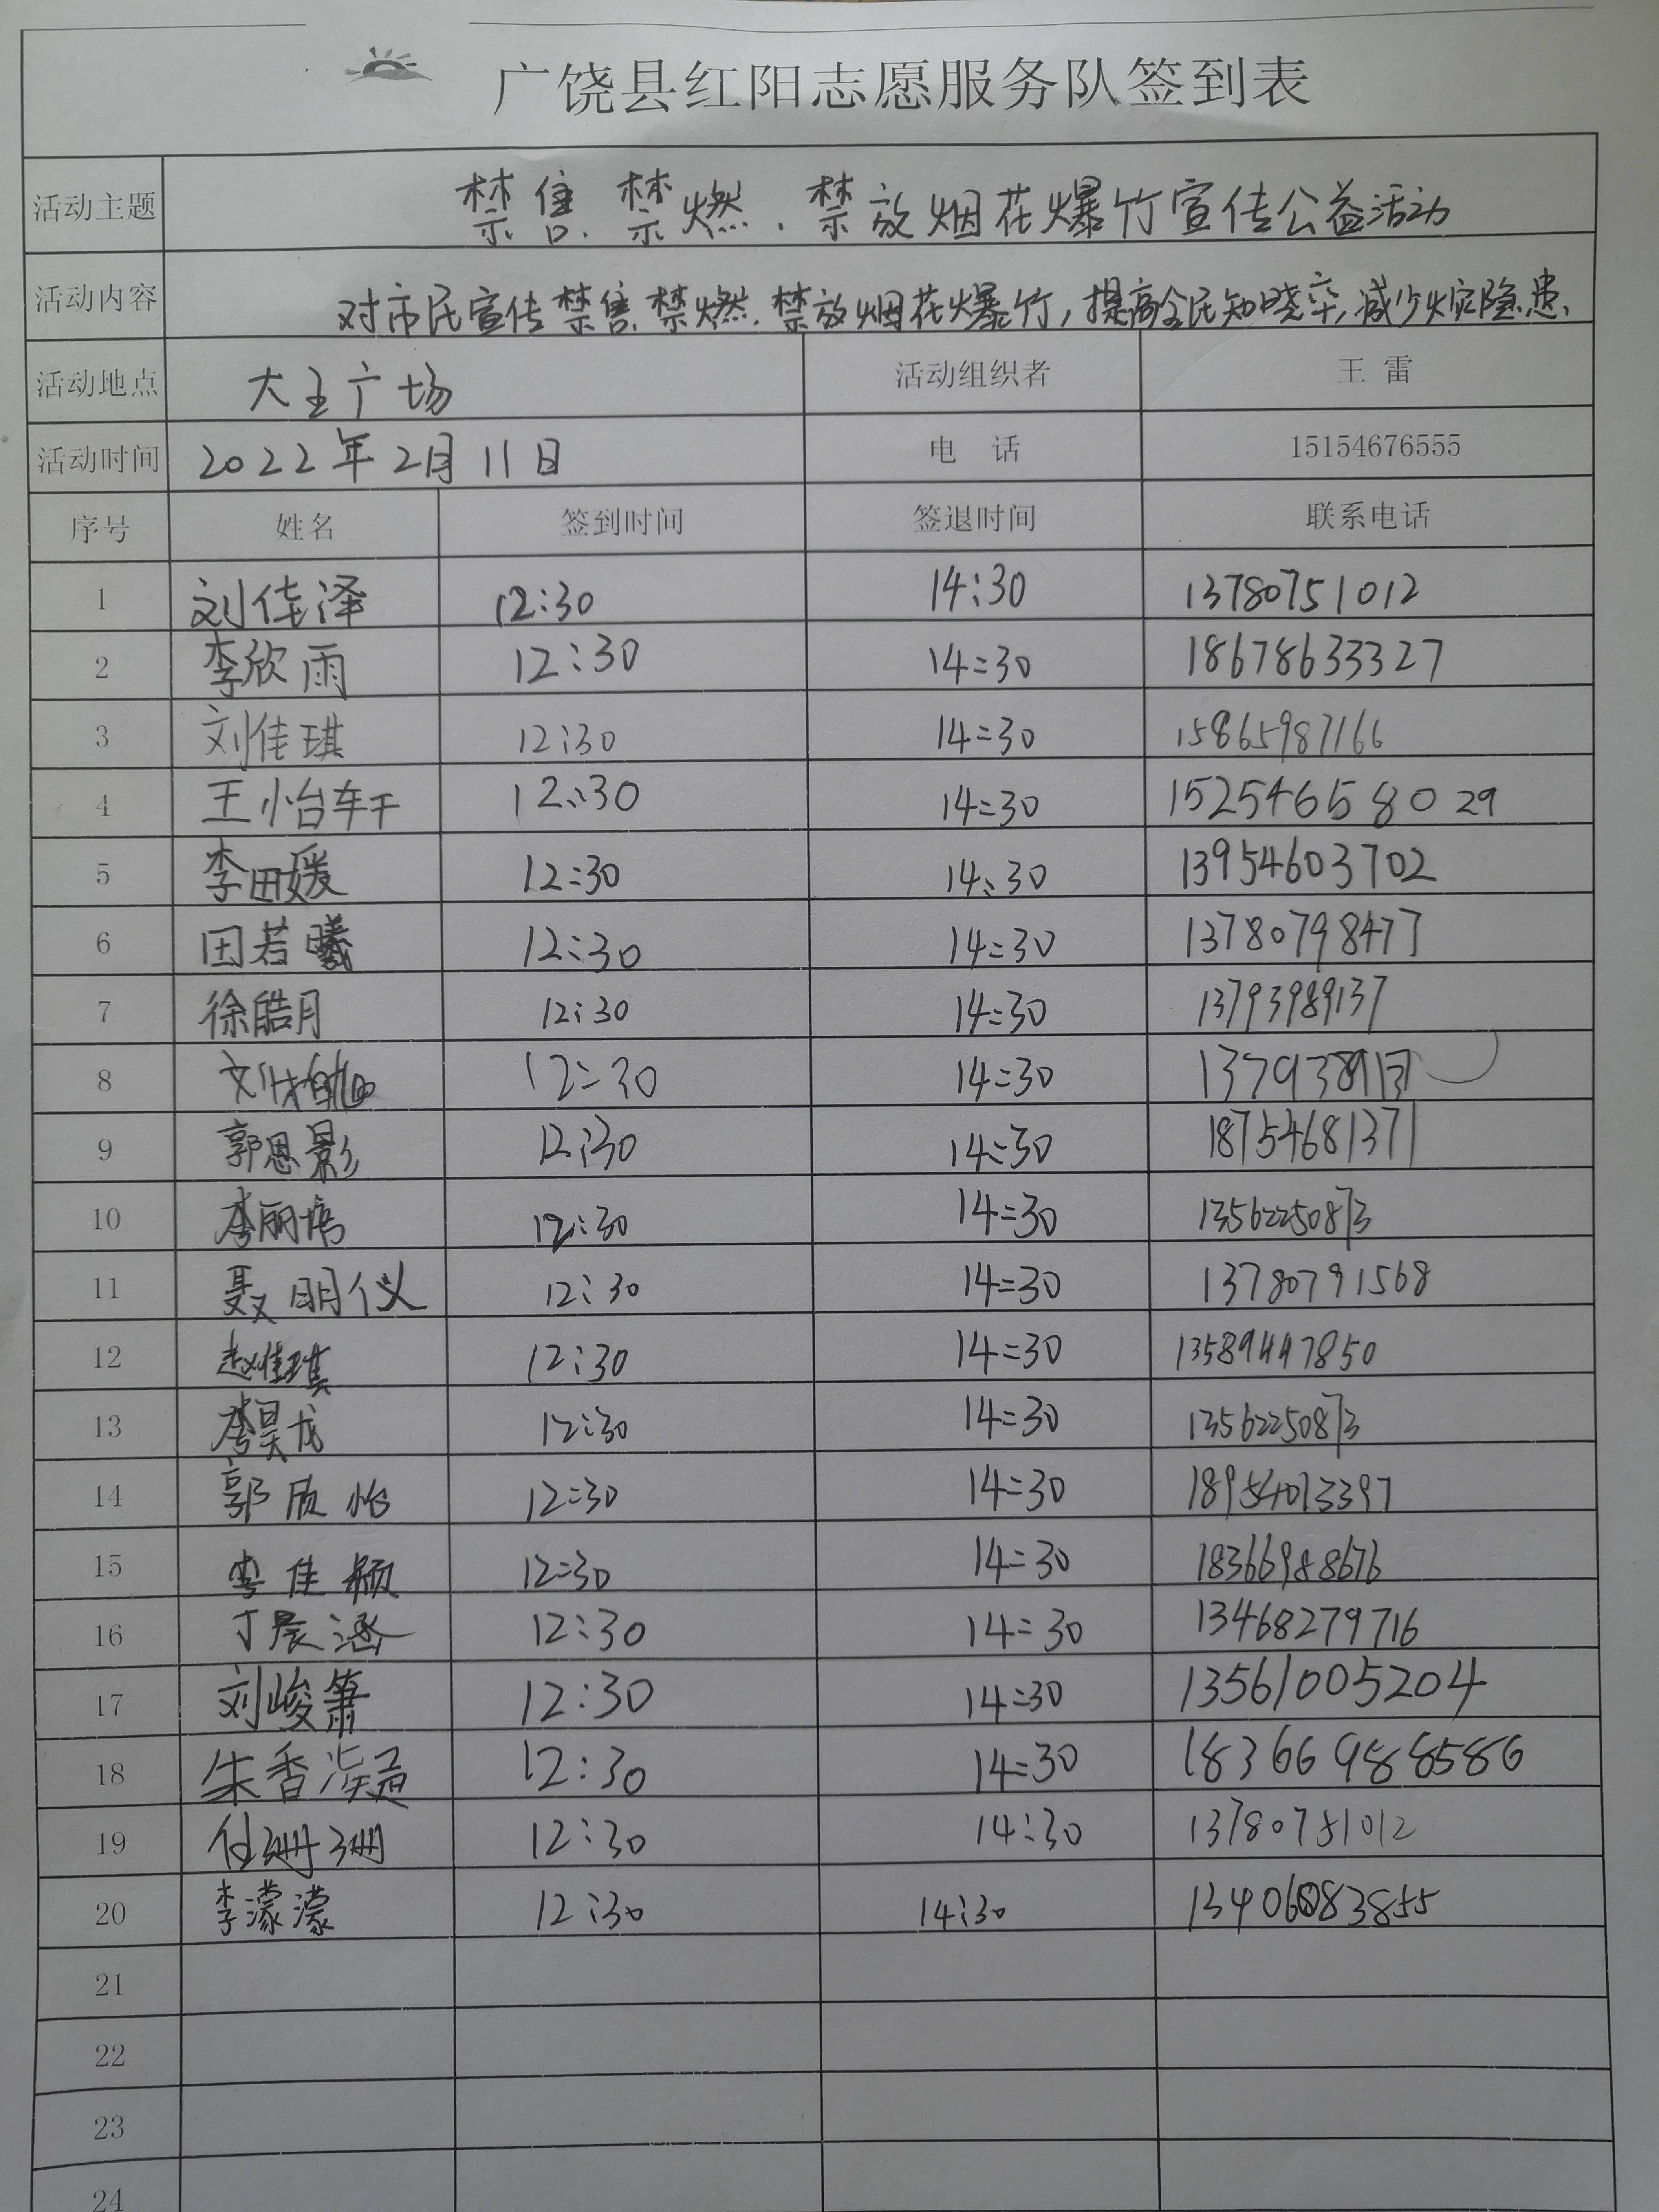 广饶县红阳志愿服务队签到表
活动主题 禁售、禁燃、禁放烟花爆竹宣传公益活动
活动内容 对市民宣传禁售、禁燃、禁放烟花爆竹，提高全民知晓率，减少火灾隐患、
活动地点 大王广场 活动组织者 王雷
活动时间 2022年2月11日 电 话 15154676555
序号 姓名 签到时间 签退时间 联系电话
1 刘佳泽 12:30 14:30 13780751012
2 李欣雨 12:30 14:30 18678633327
3 刘佳琪 12:30 14:30 15865987166
4 王怡轩 12:30 14:30 152546658029
5 李田媛 12:30 14:30 13954603702
6 田若曦 12:30 14:30 13780798477
7 徐皓月 12:30 14:30 13793989137
8 12:30 14:30
9 郭恩影 12:30 14:30 18754681371
10 李丽 12:30 14:30 13562250873
11 聂明仪 12:30 14:30 13780791568
12 赵佳琪 12:30 14:30 13589447850
13 李昊龙 12:30 14:30 13562250873
14 郭质怡 12:30 14:30 18954013397
15 李佳颖 12:30 14:30 18366988676
16 丁晨涵 12:30 14:30 13468279716
17 刘峻箫 12:30 14:30 13561005204
18 朱香凝 12:30 14:30 18366988586
19 任珊珊 12:30 14:30 13780751012
20 李濛濛 12:30 14:30
21
22
23
24